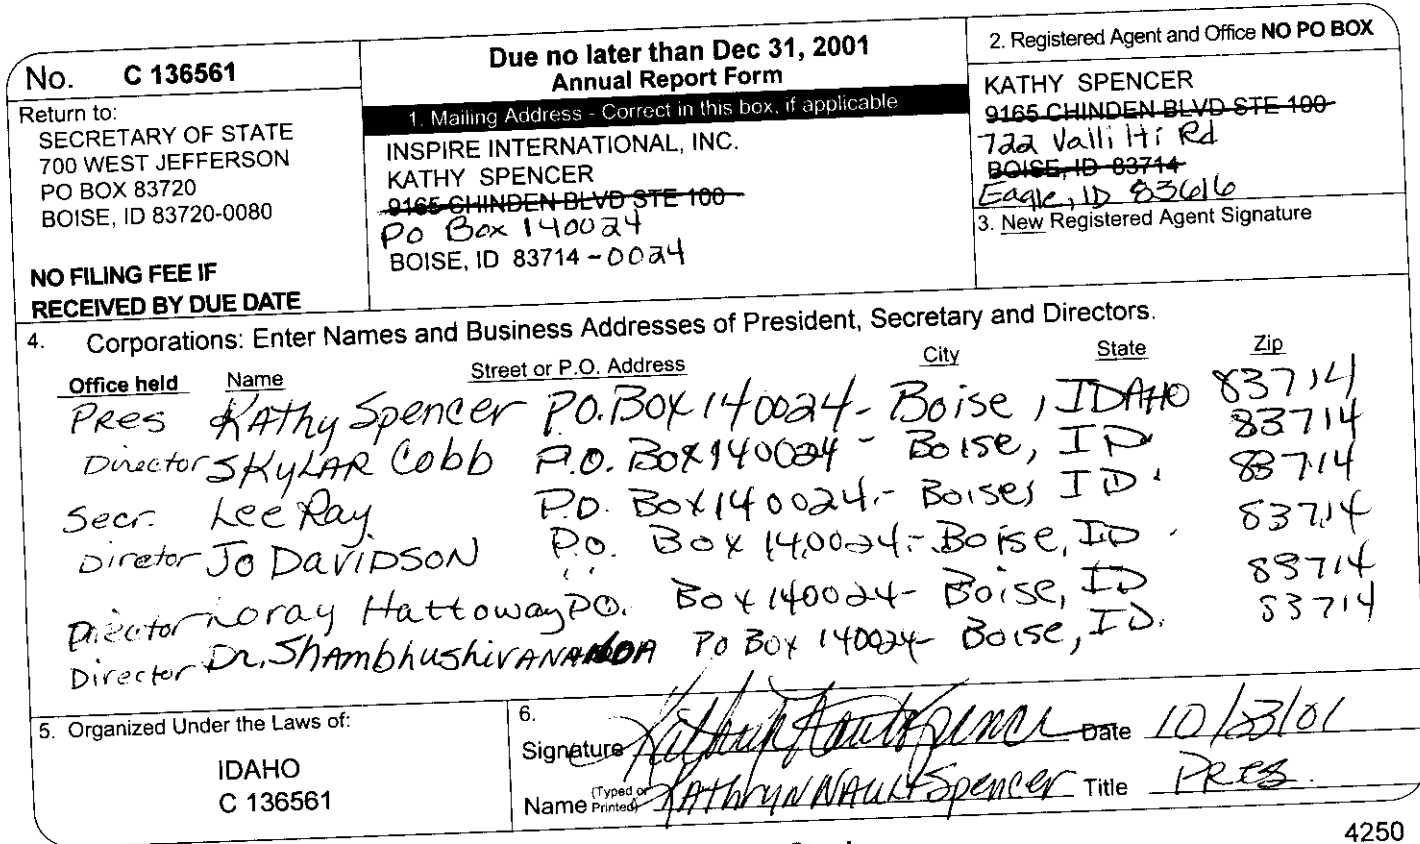 No. C 136561
Return to:
SECRETARY OF STATE
700 WEST JEFFERSON
PO BOX 83720
BOISE, ID 83720-0080
NO FILING FEE IF
RECEIVED BY DUE DATE
Due no later than Dec 31, 2001
Annual Report Form
1. Mailing Address - Correct in this box, if applicable
INSPIRE INTERNATIONAL, INC.
KATHY SPENCER
9165 CHINDEN BLVD STE 100
PO Box 140024
BOISE, ID 83714 - 0024
2. Registered Agent and Office NO PO BOX
KATHY SPENCER
9165 CHINDEN BLVD STE 100
722 Valli Hi Rd
BOISE, ID 83714
Eagle, ID 83616
3. New Registered Agent Signature
4. Corporations: Enter Names and Business Addresses of President, Secretary and Directors.
Office held Name Street or P.O. Address City State Zip
PRES KAthy Spencer P.O. BOX 140024 - Boise, IDAHO 83714
Director SKYLAR Cobb P.O. Box 140024 - Boise, ID 83714
Secr. Lee Ray P.O. Box 140024 - Boise, ID. 83714
Diretor JO DaVIDSON P.O. Box 140024 - Boise, ID 83714
Director Loray Hattoway P.O. Box 140024 - Boise, ID 83714
Director Dr. ShAmbhushivANANDA PO Box 140024 - Boise, ID. 83714
5. Organized Under the Laws of:
IDAHO
C 136561
6.
Signature Date 10/23/01
Name (Typed or Printed) KAthryn NAult Spencer Title PRES.
4250